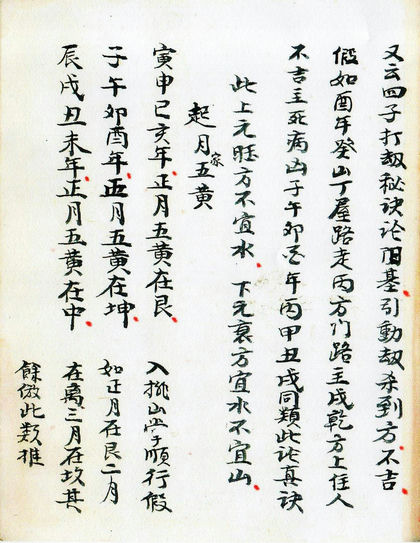 又云四子打劫秘訣论阳基引動劫杀到方不吉
假如酉年癸山丁屋路走丙方门路主戌乾方上住人
不吉主死病凶子午卯酉年丙甲丑戌同類此论真訣
此上元旺方不宜水 下元衰方宜水不宜山
起月家五黄
寅申巳亥年正月五黄在艮
子午卯酉年正月五黄在坤
辰戌丑未年正月五黄在中
入掛山字順行假
如正月在艮二月
在离三月在坎其
餘倣此類推